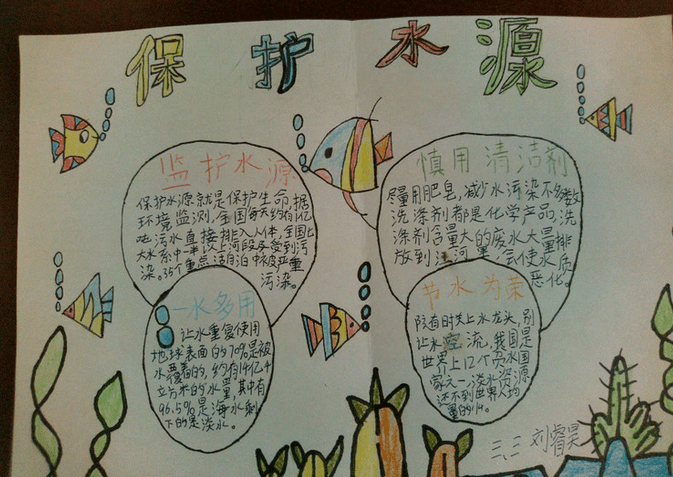 保护水源
监护水源
保护水源就是保护生命,据
环境监测,全国每天约有1亿
吨污水直接排入水体,全国七
大水系中一半以上河段受到污
染。35个重点湖泊中被严重
污染。
慎用清洁剂
尽量用肥皂,减少水污染不多数
洗涤剂都是化学产品,洗
涤剂含量大的废水大量排
放到江河里,会使水质
恶化。
一水多用
让水重复使用
地球表面的70%是被
水覆盖的,约有14亿千
立方米的水量,其中有
96.5%是海水剩
下的是淡水。
节水为荣
随时关上水龙头,别
让水空流,我国是
世界上12个贫水国
家之一,淡水资源
还不到世界人均
量的1/4。
三、二 刘睿昊